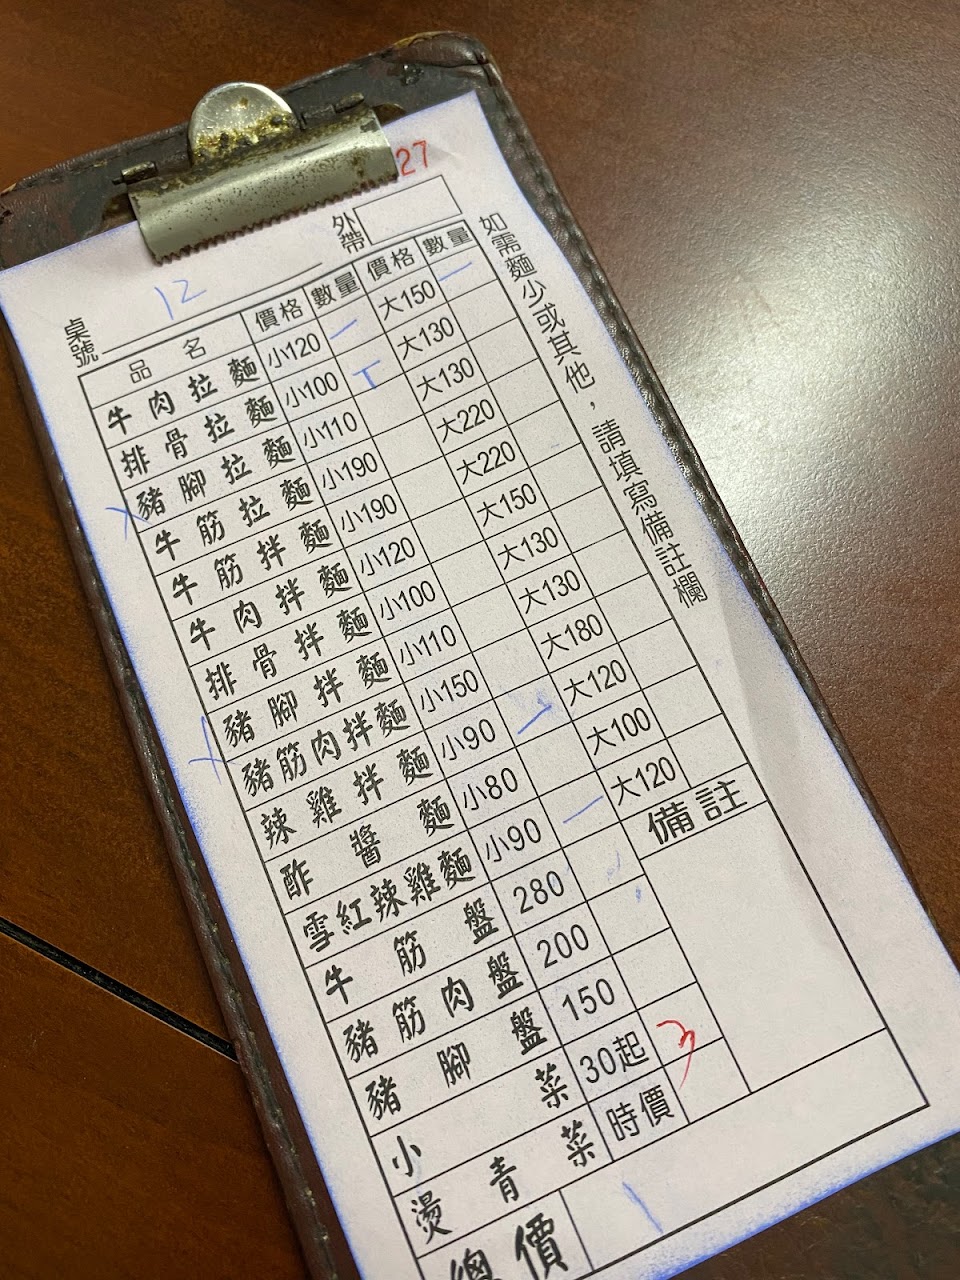 27
外帶
桌號 12
品名 價格 數量 價格 數量
牛肉拉麵 小120 一 大150 一
排骨拉麵 小100 T 大130
豬腳拉麵 小110 大130
牛筋拉麵 小190 大220
牛筋拌麵 小190 大220
牛肉拌麵 小120 大150
排骨拌麵 小100 大130
豬腳拌麵 小110 大130
豬筋肉拌麵 小150 大180
辣雞拌麵 小90 一 大120
酢醬麵 小80 大100
雪紅辣雞麵 小90 一 大120
牛筋盤 280
豬筋肉盤 200
豬腳盤 150
小菜 30起 3
燙青菜 時價
總價
備註
如需麵少或其他，請填寫備註欄